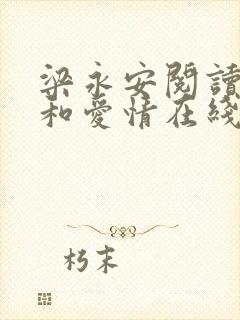 梁永安閱讀
和愛情在綫
朽末